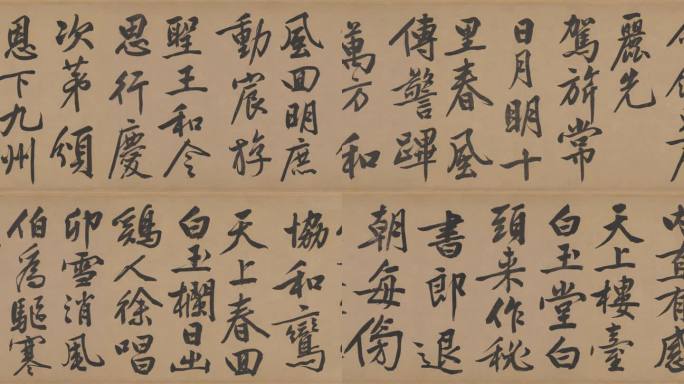 麗先
駕旂常
日月明十
里春風
傳警蹕
萬方和
風回明庶
動宸游
聖王和令
思行慶
次第頒
恩下九州
内直有感
天上樓臺
白玉堂白
頭来作秘
書郎退
朝每傍
協和鸞
天上春回
白玉欄日出
鷄人徐唱
卯雪消風
伯為驅寒